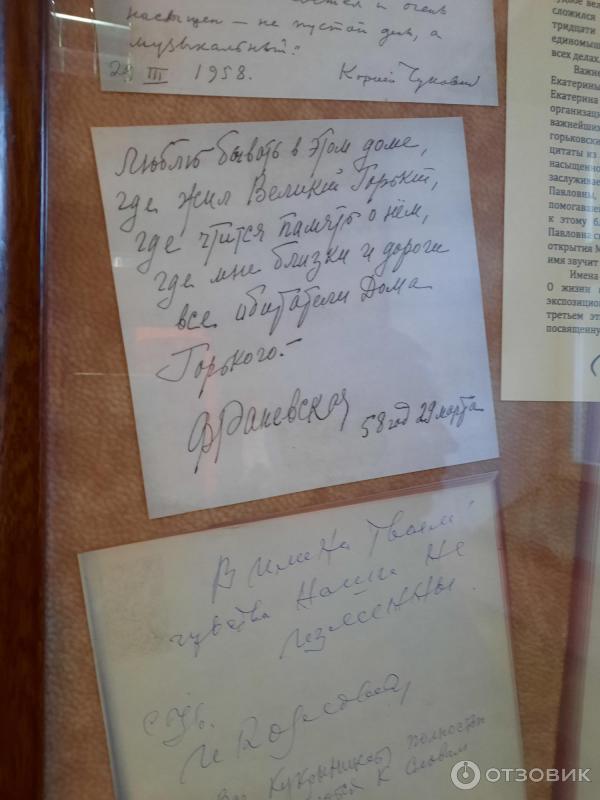 и очень
насыщен – не пустой дня, а
музыкальный."
29 III 1958. Корней Чуковский
Люблю бывать в этом доме,
где жил Великий Горький,
где чтится память о нём,
где мне близки и дороги
все обитатели Дома
Горького.–
Ф Раневская 58 год 29 марта
чувства наши не
изменны.
Кукрыниксы полностью
к словам
сложился
тридцати
единомыш
всех делах.
Важне
Екатерины
Екатерина
организаци
важнейших
горьковски
цитаты из
насыщенно
заслуживае
Павловны,
помогавшей
к этому бл
Павловна с
открытия М
имя звучит
Имена
О жизни
экспозицио
третьем эта
посвященну
ОТЗОВИК